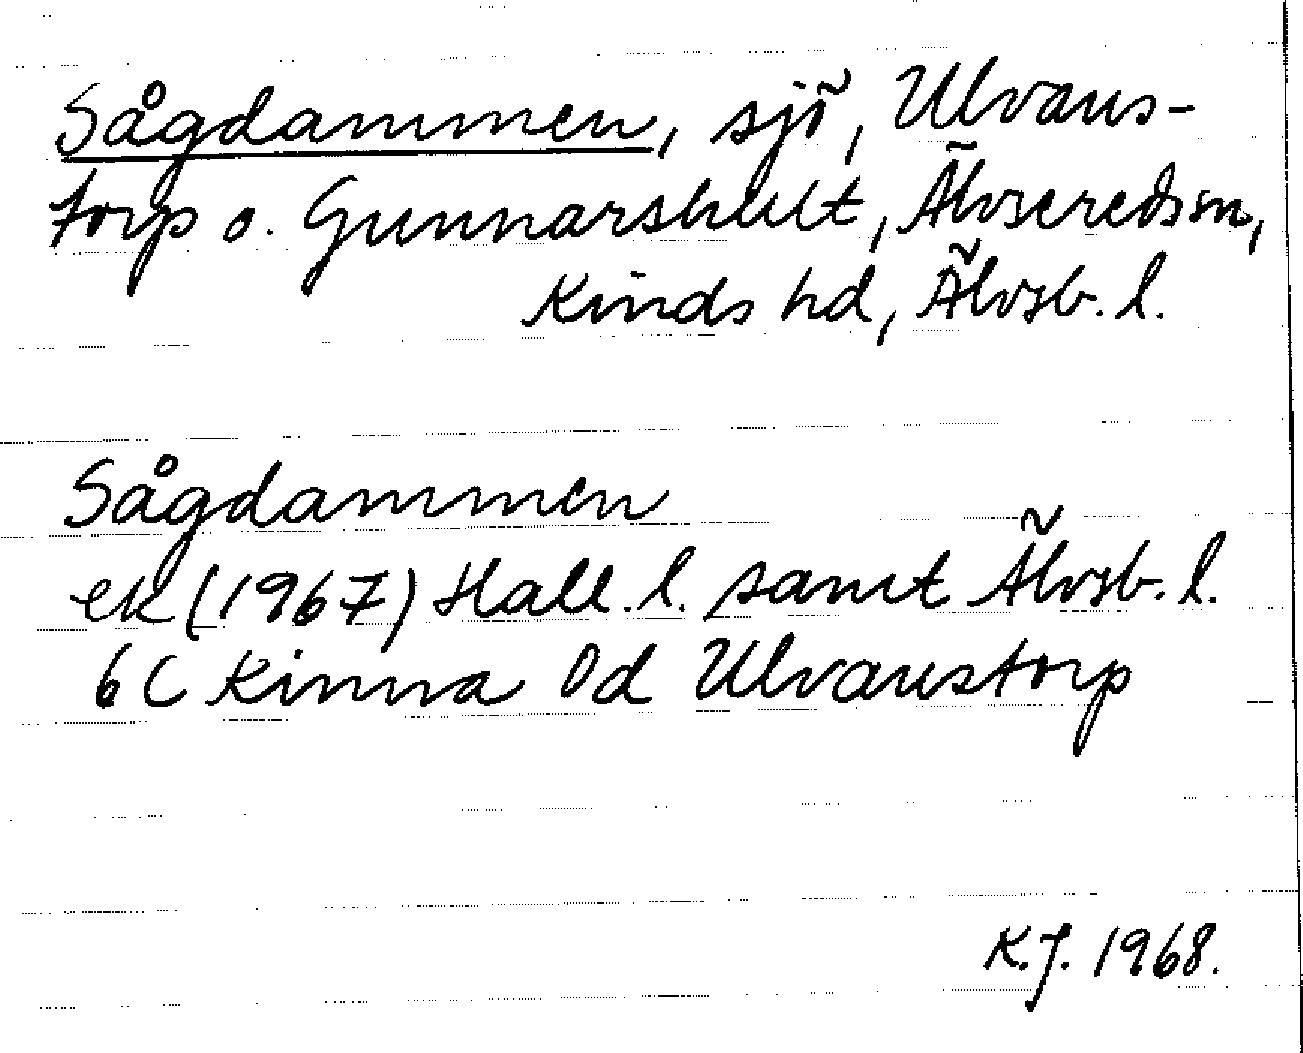 Sågdammen, sjö, Ulvaus-
torp o. Gunnarshult, Älvseredsm,
Kinds hd, Älvsb. l.
Sågdammen
ek (1967) Hall. l. samt Älvsb. l.
6C Kinna 0d Ulvaustorp
K.J. 1968.